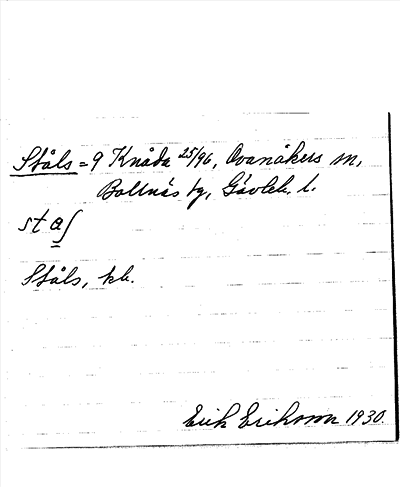 Ståls = 9 Knåda 25/96, Ovanåkers sn,
Bollnäs tg, Gävleb. l.
st a ſ
Ståls, kb.
Erik Eriksson 1930.